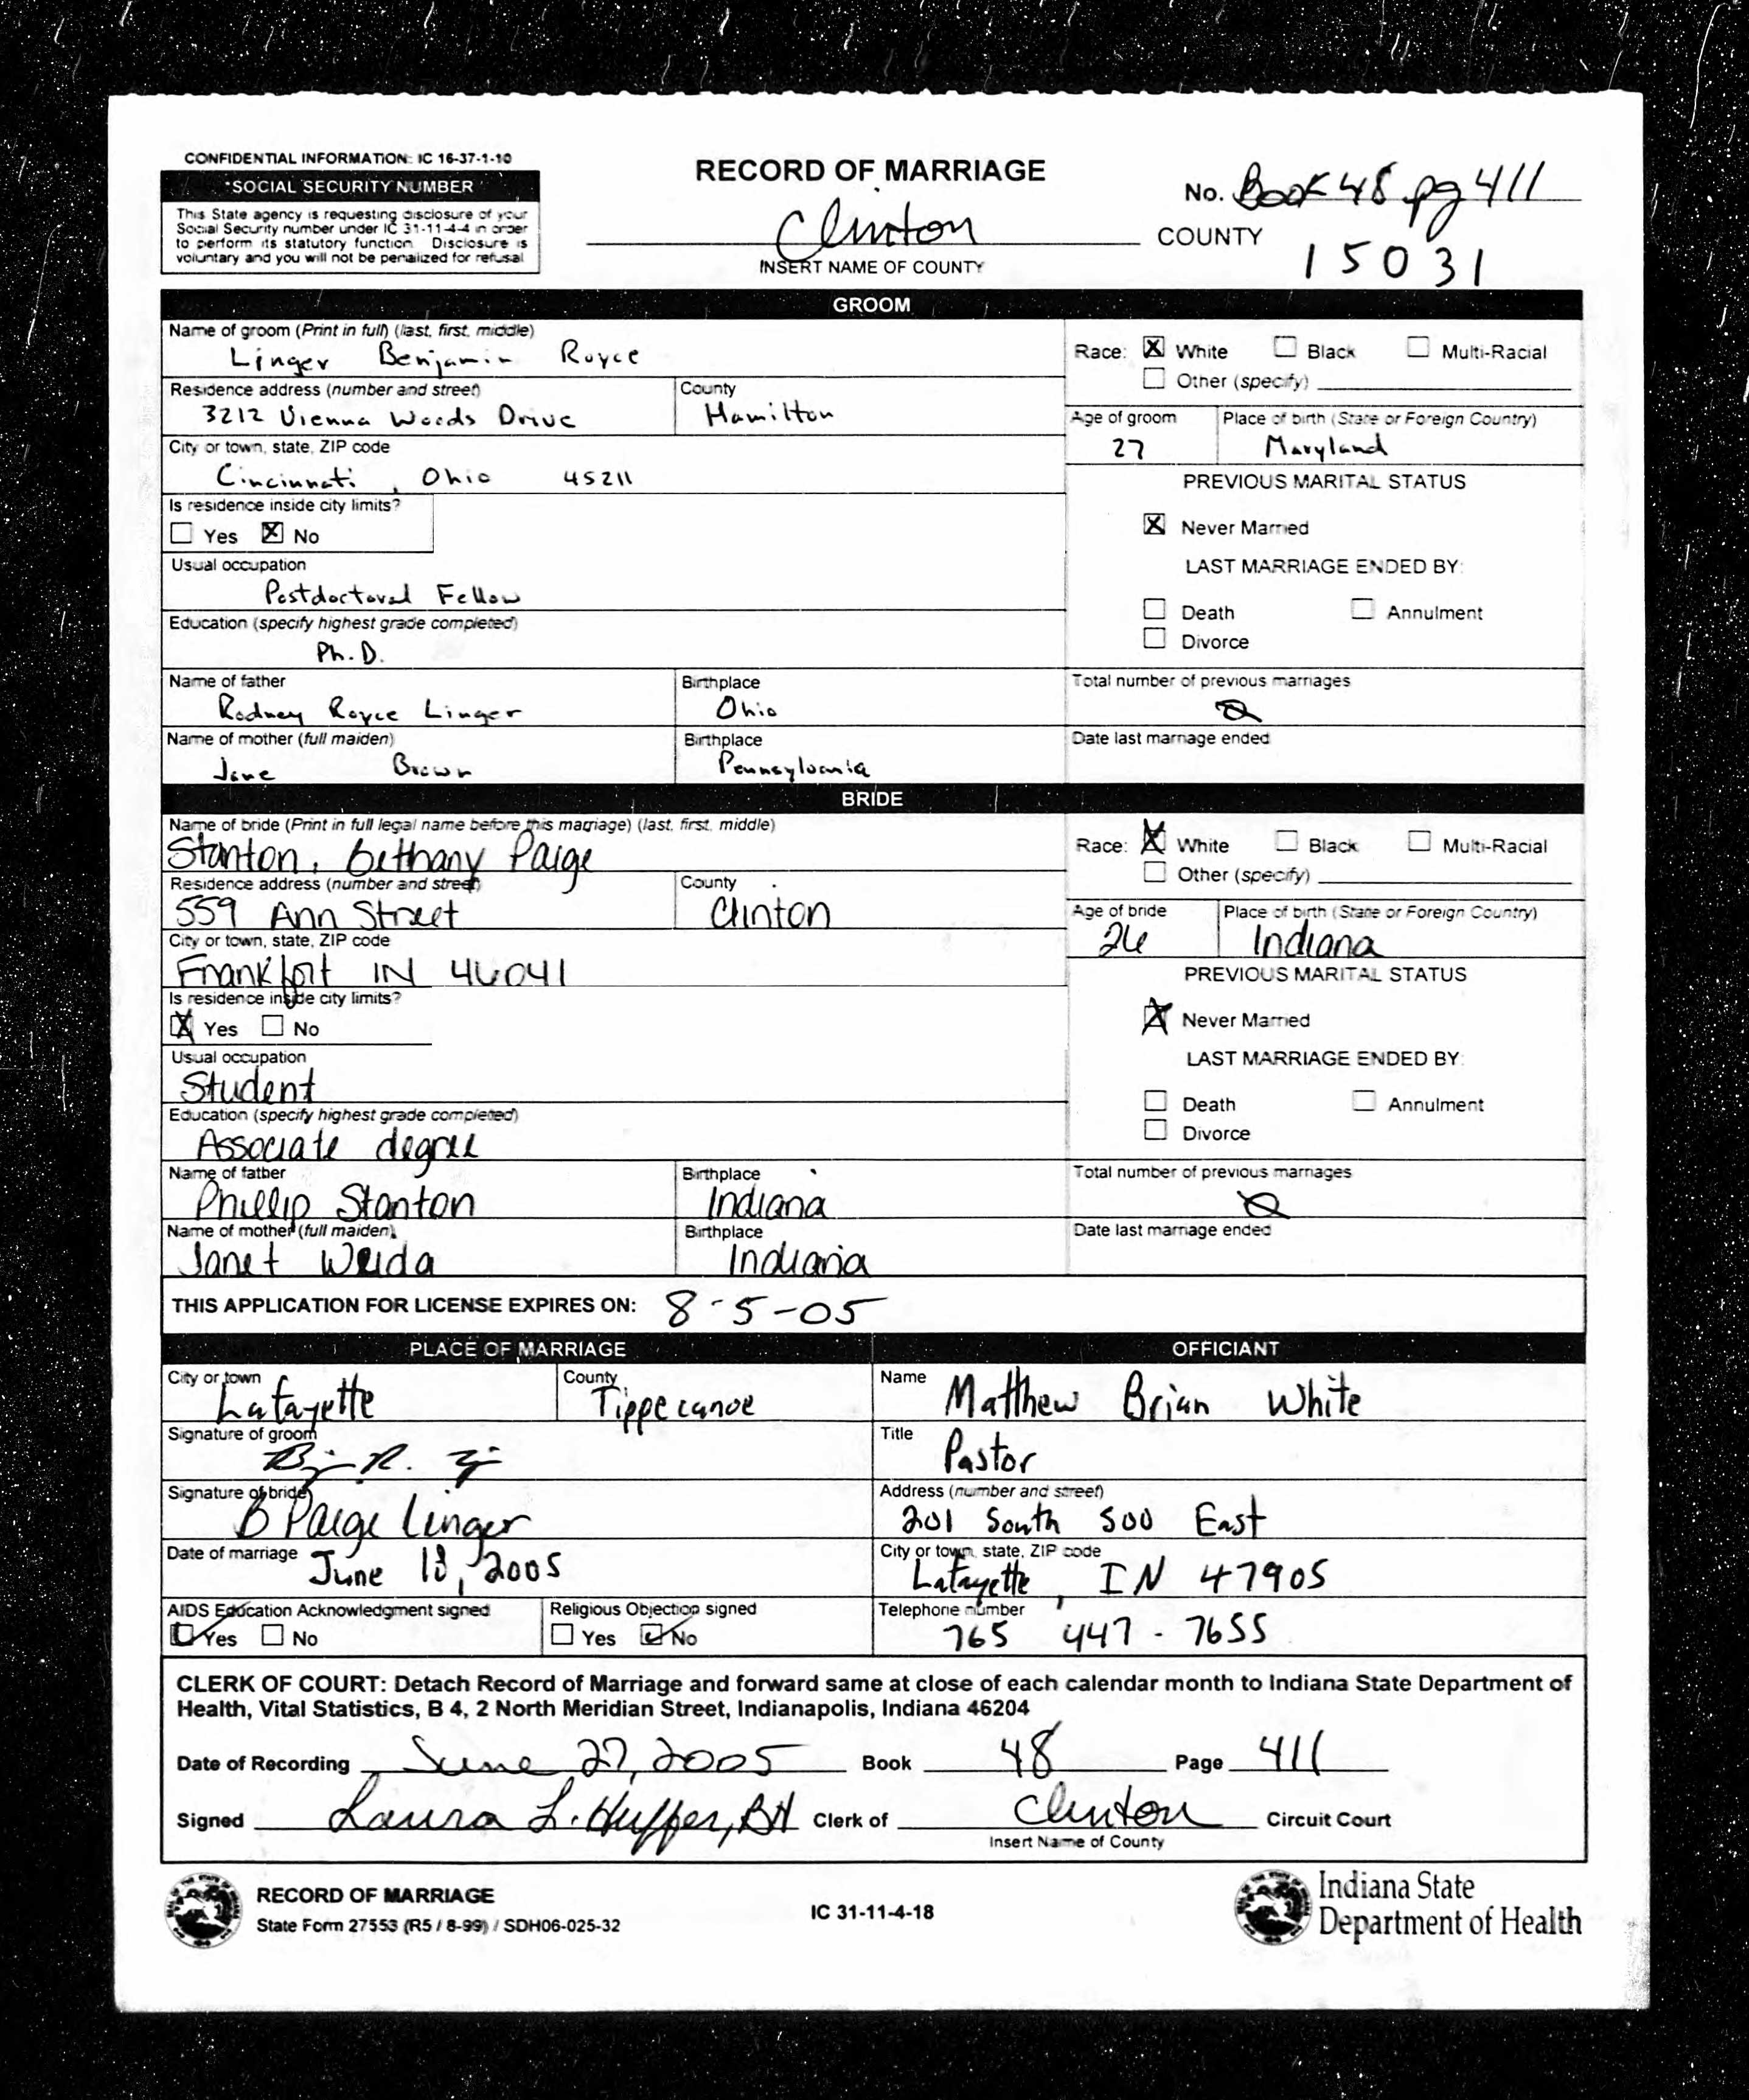 CONFIDENTIAL INFORMATION: IC 16-37-1-10
*SOCIAL SECURITY NUMBER
This State agency is requesting disclosure of your
Social Security number under IC 31-11-4-4 in order
to perform its statutory function. Disclosure is
voluntary and you will not be penalized for refusal
RECORD OF MARRIAGE
Clinton
INSERT NAME OF COUNTY
No. Book 48 pg 411
COUNTY
15031
GROOM
Name of groom (Print in full) (last, first, middle)
Linger Benjamin Royce
Race: X White Black Multi-Racial
Other (specify)
Residence address (number and street)
3212 Vienna Woods Drive
County
Hamilton
Age of groom
27
Place of birth (State or Foreign Country)
Maryland
City or town, state, ZIP code
Cincinnati, Ohio 45211
PREVIOUS MARITAL STATUS
Is residence inside city limits?
Yes X No
X Never Married
Usual occupation
Postdoctoral Fellow
LAST MARRIAGE ENDED BY:
Death Annulment
Divorce
Education (specify highest grade completed)
Ph.D.
Name of father
Rodney Royce Linger
Birthplace
Ohio
Total number of previous marriages
0
Name of mother (full maiden)
Jane Brown
Birthplace
Pennsylvania
Date last marriage ended
BRIDE
Name of bride (Print in full legal name before this marriage) (last, first, middle)
Stanton, Bethany Paige
Race: X White Black Multi-Racial
Other (specify)
Residence address (number and street)
559 Ann Street
County
Clinton
Age of bride
26
Place of birth (State or Foreign Country)
Indiana
City or town, state, ZIP code
Frankfort IN 46041
PREVIOUS MARITAL STATUS
Is residence inside city limits?
X Yes No
X Never Married
Usual occupation
Student
LAST MARRIAGE ENDED BY:
Death Annulment
Divorce
Education (specify highest grade completed)
Associate degree
Name of father
Phillip Stanton
Birthplace
Indiana
Total number of previous marriages
0
Name of mother (full maiden)
Janet Weida
Birthplace
Indiana
Date last marriage ended
THIS APPLICATION FOR LICENSE EXPIRES ON: 8-5-05
PLACE OF MARRIAGE
OFFICIANT
City or town
Lafayette
County
Tippecanoe
Name
Matthew Brian White
Signature of groom
Title
Pastor
Signature of bride
B Paige Linger
Address (number and street)
201 South 500 East
Date of marriage
June 18, 2005
City or town, state, ZIP code
Lafayette, IN 47905
AIDS Education Acknowledgment signed
Yes No
Religious Objection signed
Yes No
Telephone number
765 447-7655
CLERK OF COURT: Detach Record of Marriage and forward same at close of each calendar month to Indiana State Department of
Health, Vital Statistics, B 4, 2 North Meridian Street, Indianapolis, Indiana 46204
Date of Recording June 27, 2005 Book 48 Page 411
Signed Laura L. Huffer, BH Clerk of Clinton Circuit Court
Insert Name of County
RECORD OF MARRIAGE
State Form 27553 (R5 / 8-99) / SDH06-025-32
IC 31-11-4-18
Indiana State
Department of Health